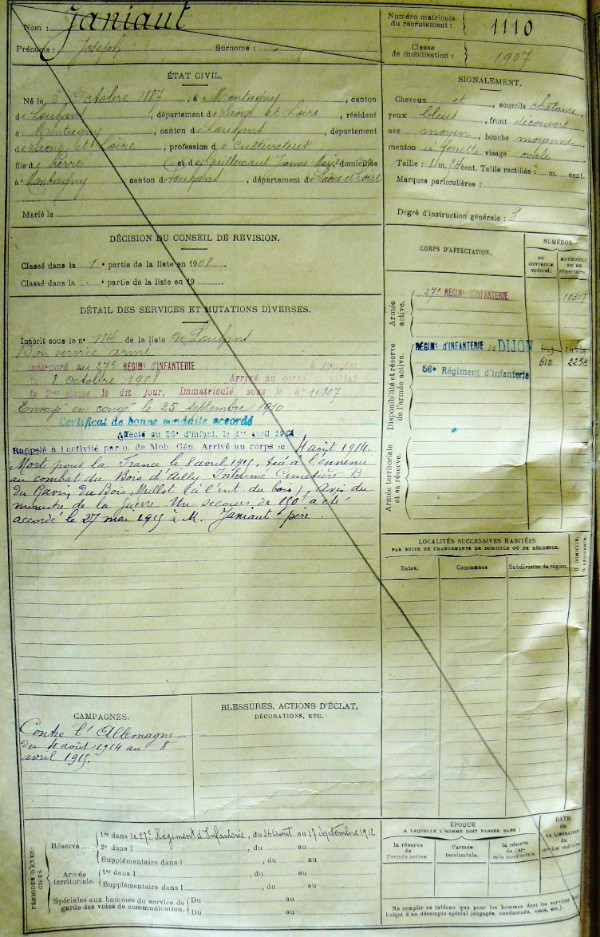 Nom : Janiaut
Prénoms : Joseph Surnoms :
Numéro matricule du recrutement : 1110
Classe de mobilisation : 1907
ÉTAT CIVIL.
Né le Octobre 1887, à Montagny, canton
de Louhans, département de Saône et Loire, résidant
à Montagny, canton de Louhans, département
de Saône et Loire, profession de Cultivateur
fils de Pierre et de domicilié
à Montagny, canton de Louhans, département de Saône et Loire
Marié le
SIGNALEMENT.
Cheveux et sourcils châtains,
yeux bleus, front découvert
nez moyen, bouche moyenne
menton à visage ovale
Taille : 1 m. cent. Taille rectifiée : m. cent.
Marques particulières :
Degré d'instruction générale : 3
DÉCISION DU CONSEIL DE REVISION.
Classé dans la 1e partie de la liste en 1908.
Classé dans la partie de la liste en 19
DÉTAIL DES SERVICES ET MUTATIONS DIVERSES.
Inscrit sous le no 114 de la liste de Louhans
Bon service armé
Incorporé au 27e RÉGIMt D'INFANTERIE à compter
du 8 Octobre 1908 Arrivé au corps
de 2e classe le dit jour, Immatriculé sous le no 10307
Envoyé en congé le 25 septembre 1910
Certificat de bonne conduite accordé
Affecté au d'Infant. le 1er avril
Rappelé à l'activité par o. de Mob. Gén. Arrivé au corps le 4 août 1914.
Mort pour la France le 8 avril 1915, tué à l'ennemi
au combat du Bois d'Ailly. Inhumé Cimetière B
du Ravin du Bois Mullot (à l' du bois). Avis du
ministre de la guerre. Un secours de 150f a été
accordé le 27 mai 1915 à M. Janiaut père
CORPS D'AFFECTATION.
NUMÉROS
AU CONTROLE spécial.
MATRICULE OU AU répertoire.
Armée active.
27e RÉGIMt D'INFANTERIE 10307
Disponibilité et réserve de l'armée active.
RÉGIMt D'INFANTERIE de DIJON
56e Régiment d'Infanterie 610
Armée territoriale et sa réserve.
LOCALITÉS SUCCESSIVES HABITÉES
PAR SUITE DE CHANGEMENTS DE DOMICILE OU DE RÉSIDENCE.
Dates. Communes. Subdivisions de région. D. DOMICILE. R. RÉSIDENCE.
CAMPAGNES.
Contre l'Allemagne
du 4 août 1914 au 8
avril 1915.
BLESSURES, ACTIONS D'ÉCLAT,
DÉCORATIONS, ETC.
PÉRIODES D'EXERCICES
Réserve
1re dans le 27e Régiment d'Infanterie, du 26 août au 17 Septembre 1912
2e dans l , du au
Supplémentaire dans l , du au
Armée territoriale.
1re dans l , du au
Supplémentaire dans l , du au
Spéciales aux hommes du service de garde des voies de communication.
Du au
Du au
ÉPOQUE
A LAQUELLE L'HOMME DOIT PASSER DANS :
la réserve de l'armée active.
l'armée territoriale.
la réserve de l'armée territoriale.
DATE de LA LIBÉRATION du service militaire.
Ne remplir ce tableau que pour les hommes dont les services font
l'objet d'un décompte spécial (engagés, condamnés, omis, etc.)